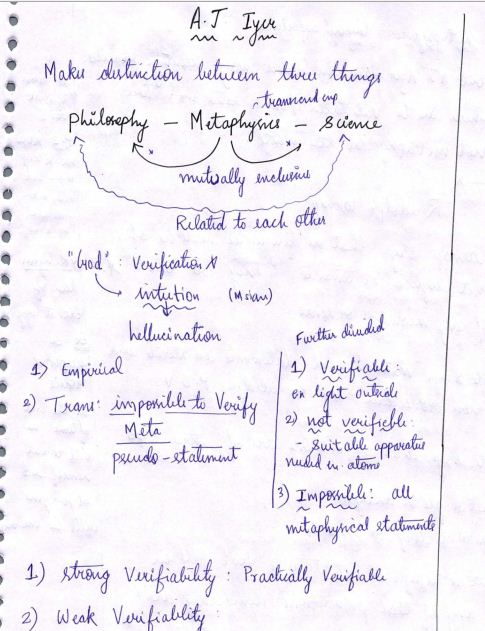 A.J Iyer
Makes distinction between three things
transcend exp
Philosophy - Metaphysics - Science
mutually exclusive
Related to each other
"God" : Verification X
intution
hellucination
1) Empirical
2) Trans: impossible to Verify
Meta
pseudo-statement
Further divided
1) Verifiable:
ex light outside
2) not verifieble:
- Suitable apparatus
needed in atoms
3) Impossible: all
metaphysical statements
1) Strong Verifiability : Practically Verifiable
2) Weak Verifiability: